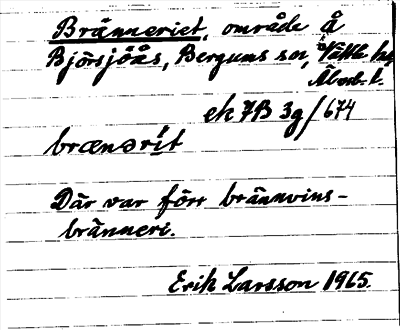 Bränneriet, område å
Björsjöås, Bergums sn, Vättle hd
Älvsb. l.
ek 7B 3g/674
brænərit
Där var förr brännvins-
bränneri.
Erik Larsson 1965.